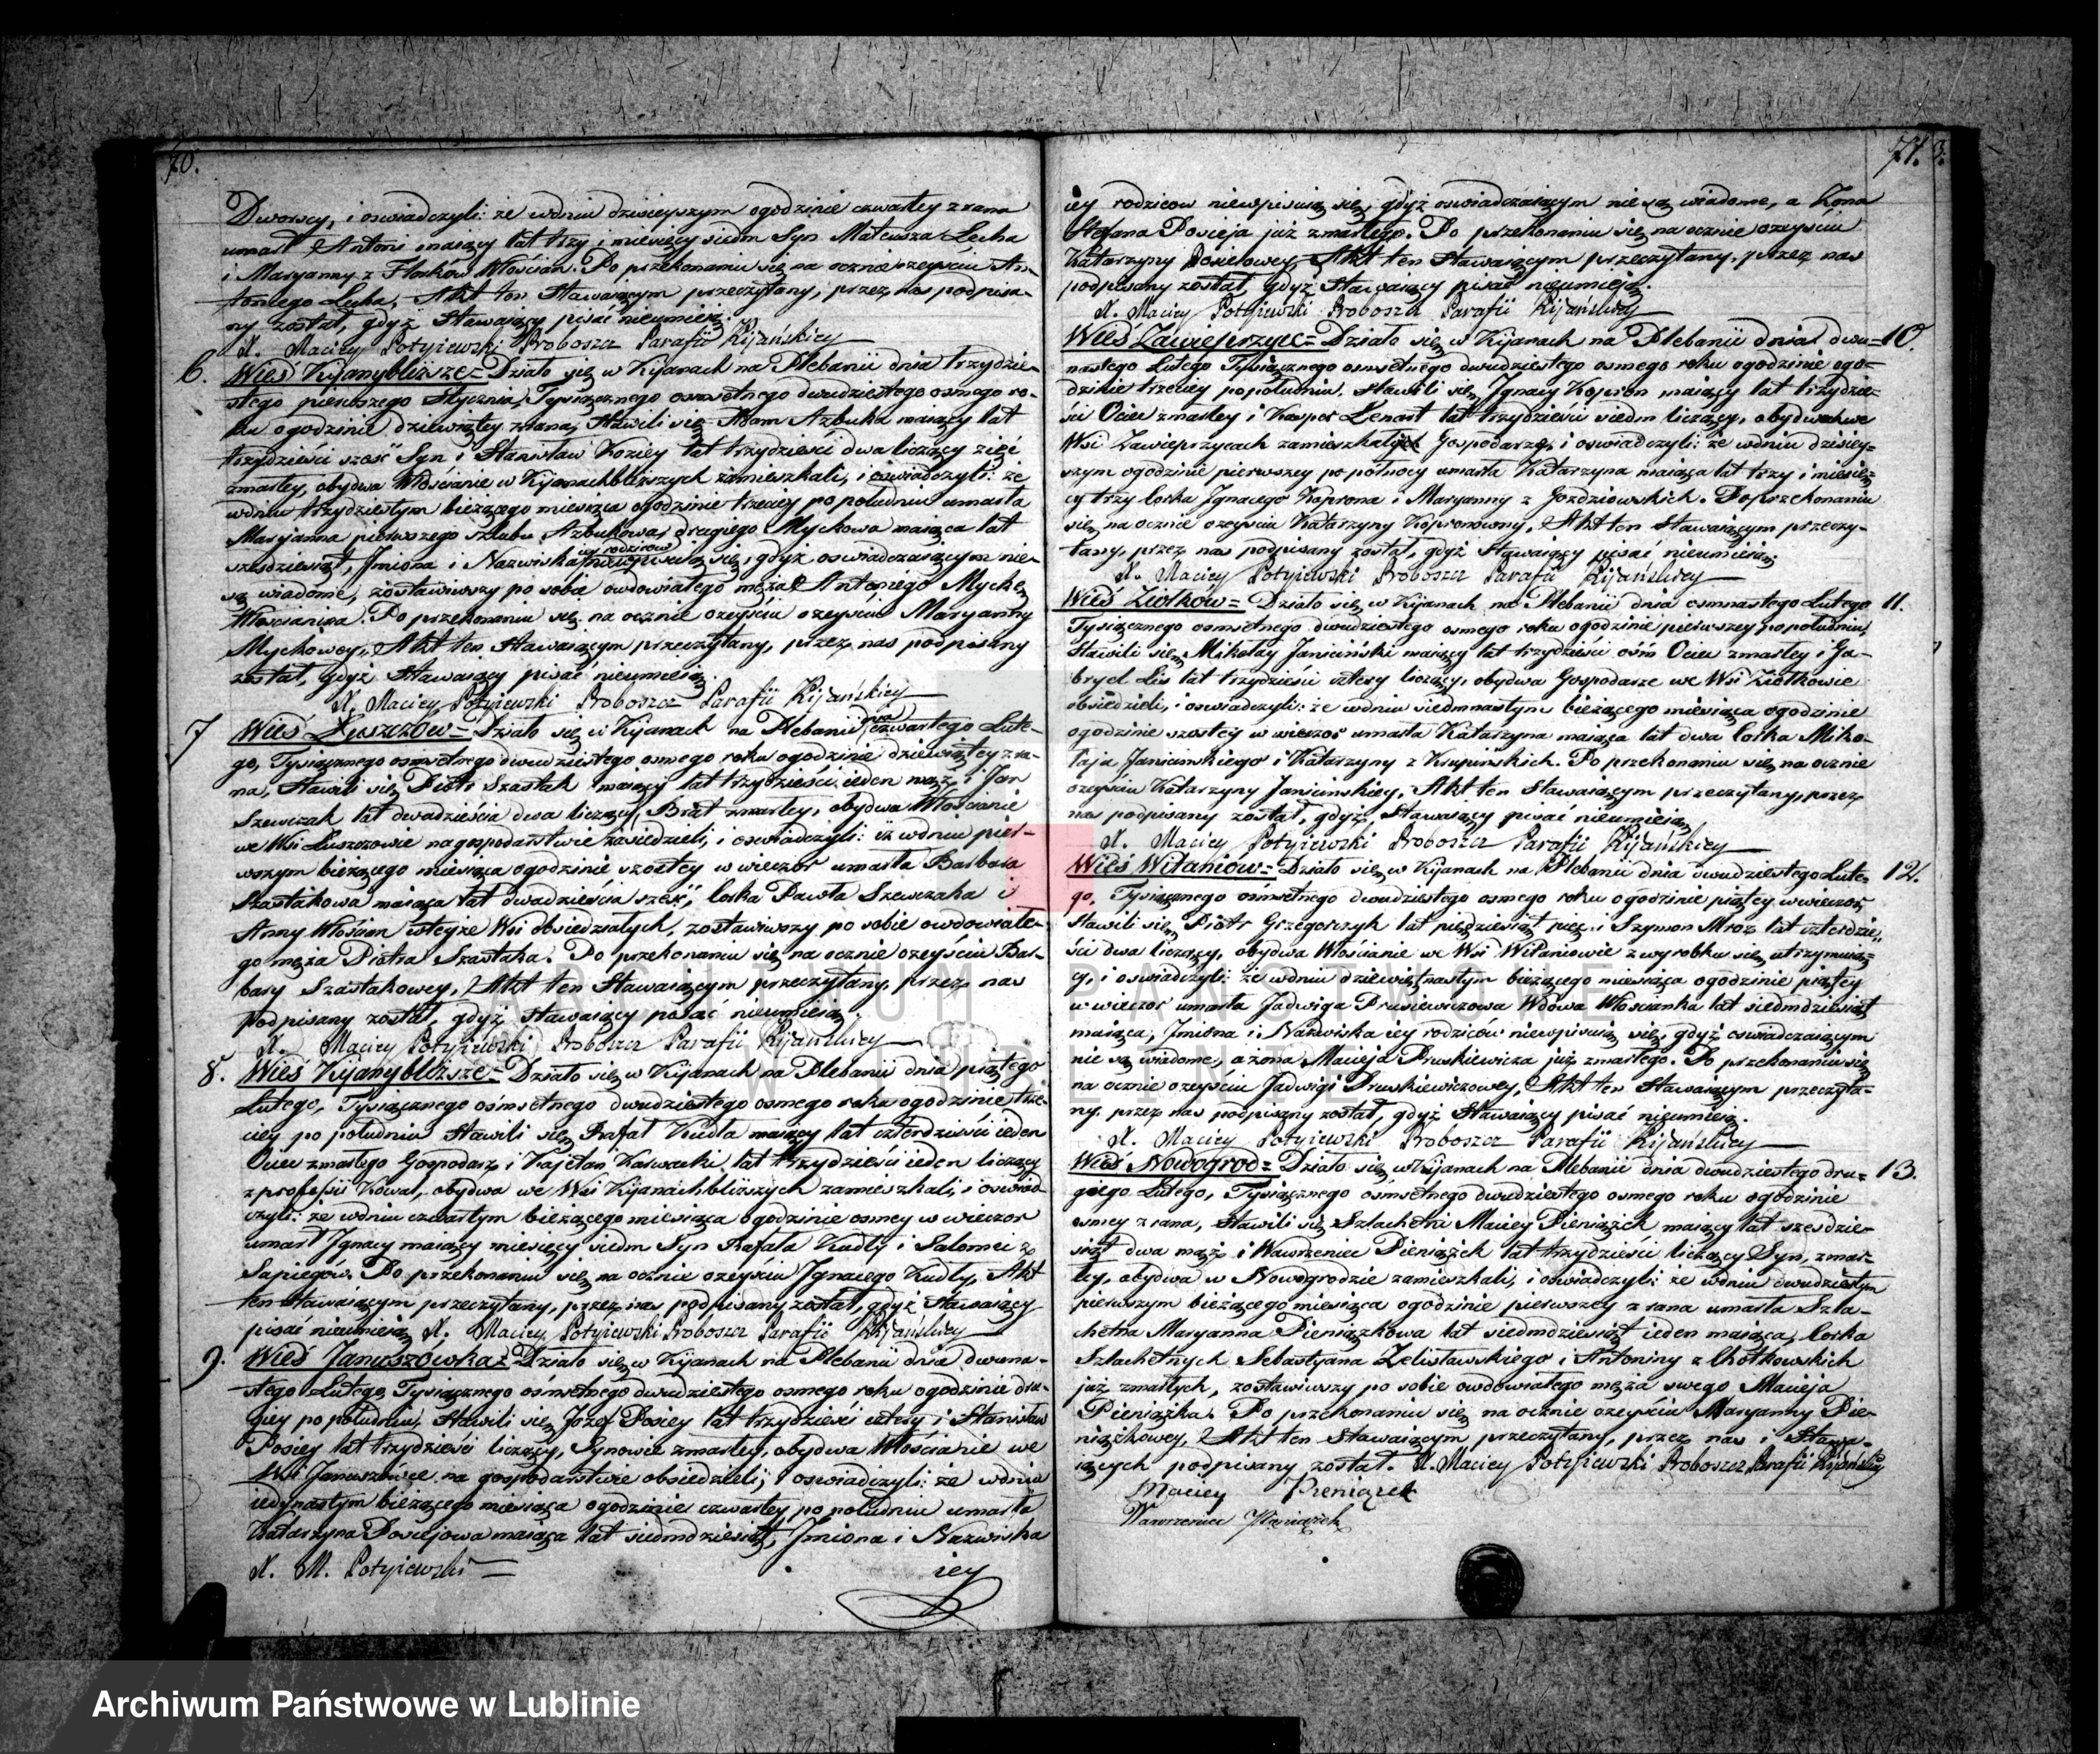 70.
Dworscy, i oswiadczyli: że wdniu dzisieyszym ogodzinie czwartey zrana
umarł Antoni maiący lat trzy i miesięcy siedm Syn Mateusza Lecha
i Maryanny z Flisków Włościan. Po przekonaniu się na ocznie ozeyściu An-
toniego Lecha, Akt ten Stawaiącym przeczytany, przez nas podpisa-
ny został, gdyż Stawaiący pisać nieumieią.
X. Maciey Potyiewski Proboszcz Parafii Kijańskiey
6. Wieś Kijanybliższe= Działo się w Kijanach na Plebanii dnia trzydzie-
stego pierwszego Stycznia, Tysiącznego osmsetnego dwudziestego osmego ro-
ku ogodzinie dziewiątey zrana, Stawili się Adam Azbuka maiący lat
trzydzieści sześć Syn i Stanisław Koziey lat trzydzieści dwa liczący zięć
zmarłey, obydwa Włościanie w Kijanachbliższych zamieszkali, i oswiadczyli: że
wdniu trzydziestym bieżącego miesiąca ogodzinie trzeciey po południu umarła
Maryanna pierwszego szlubu Azbukowa, drugiego Myckowa maiąca lat
sześdziesiąt, Jmiona i Nazwiska iey rodziców niewpisuią się, gdyż oswiadczaiącym nie-
są wiadome, zostawiwszy po sobie owdowiałego męża Antoniego Myckę
Włościanina. Po przekonaniu się na ocznie ozeyściu ozeyściu Maryanny
Myckowey, Akt ten Stawaiącym przeczytany, przez nas podpisany
został, gdyż Stawaiący pisać nieumieią.
X. Maciey Potyiewski Proboszcz Parafii Kijańskiey
7 Wieś Łuszczów= Działo się w Kijanach na Plebanii dnia czwartego Lute-
go, Tysiącznego osmsetnego dwudziestego osmego roku ogodzinie dziewiątey zra-
na, Stawili się Piotr Szastak maiący lat trzydzieści ieden mąż, i Jan
Szewczak lat dwadzieścia dwa liczący, Brat zmarłey, obydwa Włościanie
we Wsi Łuszczowie na gospodarstwie zasiedzieli, i oswiadczyli: iż wdniu pier-
wszym bieżącego miesiąca ogodzinie szostey w wieczór umarła Barbara
Szastakowa maiąca lat dwadzieścia sześć, Corka Pawła Szewczaka i
Anny Włościan wteyże Wsi obsiedziałych, zostawiwszy po sobie owdowiałe-
go męża Piotra Szastaka. Po przekonaniu się na ocznie ozeyściu Bar-
bary Szastakowey, Akt ten Stawaiącym przeczytany, przez nas
podpisany został, gdyż Stawaiący pisać nieumieią.
X. Maciey Potyiewski Proboszcz Parafii Kijańskiey
8. Wieś Kijanybliższe= Działo się w Kijanach na Plebanii dnia piątego
Lutego, Tysiącznego ośmsetnego dwudziestego osmego roku ogodzinie trze-
ciey po południu Stawili się Rafał Kudła maiący lat czterdzieści ieden
Ociec zmarłego Gospodarz i Kajetan Kalwacki lat trzydzieści ieden liczący
z professii Kowal, obydwa we Wsi Kijanachbliższych zamieszkali, i oswiad-
czyli: że wdniu czwartym bieżącego miesiąca ogodzinie osmey w wieczor
umarł Jgnacy maiący miesięcy siedm Syn Rafała Kudły i Salomei z
Sapiegów. Po przekonaniu się na ocznie ozeyściu Jgnacego Kudły, Akt
ten Stawaiącym przeczytany, przez nas podpisany został, gdyż Stawaiący
pisać nieumieią X. Maciey Potyiewski Proboszcz Parafii Kijańskiey
9. Wieś Januszówka= Działo się w Kijanach na Plebanii dnia dwuna-
stego Lutego, Tysiącznego ośmsetnego dwudziestego osmego roku ogodzinie dru-
giey po południu, Stawili się Jozef Posiey lat trzydzieści cztery i Stanisław
Posiey lat trzydzieści liczący, Synowie zmarłey, obydwa Włościanie we
Wsi Januszówce na gospodarstwie obsiedzieli, i oswiadczyli: że wdniu
iedynastym bieżącego miesiąca ogodzinie czwartey po południu umarła
Katarzyna Posiejowa maiąca lat siedmdziesiąt, Jmiona i Nazwiska
X. M. Potyiewski
iey
71.
iey rodziców niewpisuią się, gdyż oswiadczaiącym nie są wiadome, a Żona
Stefana Posieja już zmarłego. Po przekonaniu się na ocznie ozeyściu
Katarzyny Posiejowey, Akt ten Stawaiącym przeczytany, przez nas
podpisany został, gdyż Stawaiący pisać nieumieią.
X. Maciey Potyiewski Proboszcz Parafii Kijańskiey
Wieś Zawieprzyce= Działo się w Kijanach na Plebanii dnia dwu= 10.
nastego Lutego Tysiącznego osmsetnego dwudziestego osmego roku ogodzinie ogo=
dzinie trzeciey po południu, Stawili się Jgnacy Kopron maiący lat trzydzie-
ści Ociec zmarłey i Kasper Lenart lat trzydzieści siedm liczący, obydwa we
Wsi Zawieprzycach zamieszkali Gospodarze, i oswiadczyli: że wdniu dzisiey=
szym ogodzinie pierwszey po północy umarła Katarzyna maiąca lat trzy i miesię=
cy trzy Corka Jgnacego Koprona i Maryanny z Gozdziowskich. Po przekonaniu
się na ocznie ozeyściu Katarzyny Kopronowny, Akt ten Stawaiącym przeczy-
tany, przez nas podpisany został, gdyż Stawaiący pisać nieumieią.
X. Maciey Potyiewski Proboszcz Parafii Kijańskiey
Wieś Ziołków= Działo się w Kijanach na Plebanii dnia osmnastego Lutego 11.
Tysiącznego osmsetnego dwudziestego osmego roku ogodzinie pierwszey popołudniu,
Stawili się Mikołay Janiciński maiący lat trzydzieści ośm Ociec zmarłey i Ga-
bryel Lis lat trzydzieści cztery liczący, obydwa Gospodarze we Wsi Ziołkowie
obsiedzieli, i oswiadczyli: że wdniu siedmnastym bieżącego miesiąca ogodzinie
ogodzinie szostey w wieczor umarła Katarzyna maiąca lat dwa Corka Miko-
łaja Janicinskiego i Katarzyny z Krupińskich. Po przekonaniu się na ocznie
ozeyściu Katarzyny Janicinskiey, Akt ten Stawaiącym przeczytany, przez
nas podpisany został, gdyż Stawaiący pisać nieumieią
X. Maciey Potyiewski Proboszcz Parafii Kijańskiey
Wieś Witaniów= Działo się w Kijanach na Plebanii dnia dwudziestego Lute= 12.
go, Tysiącznego ośmsetnego dwudziestego osmego roku ogodzinie piątey wwieczor,
Stawili się Piotr Grzegorczyk lat pięćdziesiąt pięć i Szymon Mroz lat czterdzie-
ści dwa liczący, obydwa Włościanie we Wsi Witaniowie z wyrobku się utrzymuią=
cy, i oswiadczyli: że wdniu dziewiętnastym bieżącego miesiąca ogodzinie piątey
w wieczor umarła Jadwiga Pruskiewiczowa Wdowa Włościanka lat siedmdziesiąt
maiąca, Jmiona i Nazwiska iey rodziców niewpisuią się, gdyż oswiadczaiącym
nie są wiadome, a żona Macieja Pruskiewicza już zmarłego. Po przekonaniu się
na ocznie ozeyściu Jadwigi Pruskiewiczowey, Akt ten Stawaiącym przeczyta-
ny, przez nas podpisany został, gdyż Stawaiący pisać nieumieią.
X. Maciey Potyiewski Proboszcz Parafii Kijańskiey
Wieś Nowogrod= Działo się w Kijanach na Plebanii dnia dwudziestego dru= 13.
giego Lutego, Tysiącznego ośmsetnego dwudziestego osmego roku ogodzinie
osmey zrana, Stawili się Szlachetni Maciey Pieniążek maiący lat sześdzie-
siąt dwa mąż i Wawrzeniec Pieniążek lat trzydzieści liczący Syn, zmar-
łey, obydwa w Nowogrodzie zamieszkali, i oswiadczyli: że wdniu dwudziestym
pierwszym bieżącego miesiąca ogodzinie pierwszey zrana umarła Szla-
chetna Maryanna Pieniążkowa lat siedmdziesiąt ieden maiąca, Corka
Szlachetnych Sebastyana Zelisławskiego i Antoniny z Chotkowskich
już zmarłych, zostawiwszy po sobie owdowiałego męża swego Macieja
Pieniążka. Po przekonaniu się na ocznie ozeyściu Maryanny Pie-
niążkowey, Akt ten Stawaiącym przeczytany, przez nas i Stawa-
iących podpisany został. X. Maciey Potyiewski Proboszcz Parafii Kijańskiey
Maciey Pieniążek
Wawrzeniec Pieniążek
ARCHIWUM PAŃSTWOWE
W LUBLINIE
Archiwum Państwowe w Lublinie